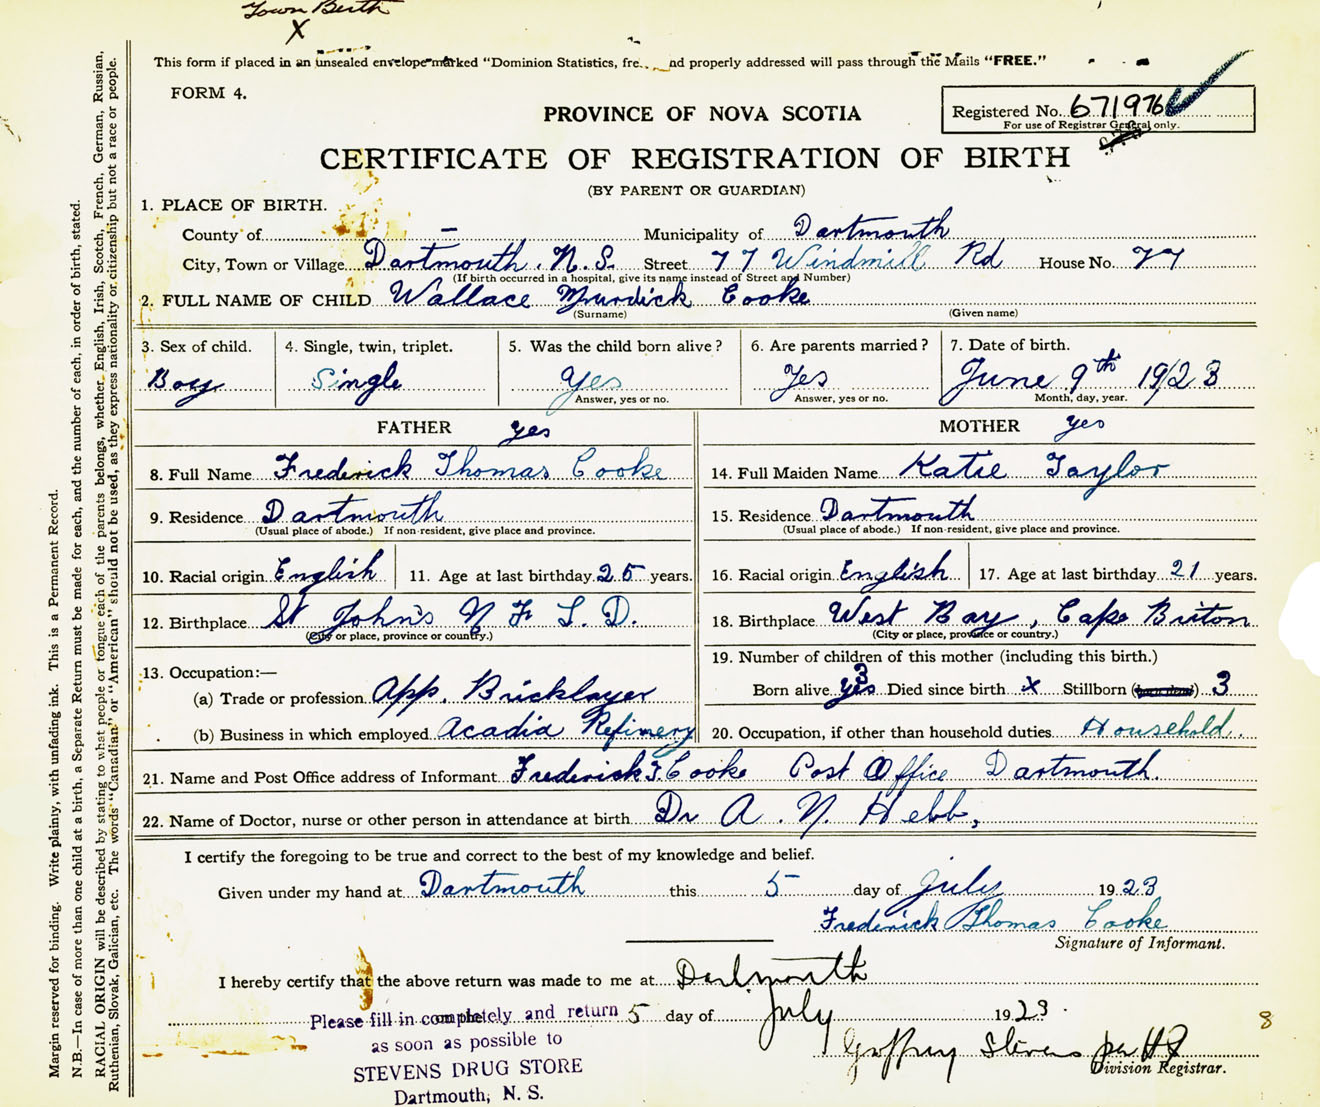 Town Berth
X
This form if placed in an unsealed envelope marked "Dominion Statistics, fre... nd properly addressed will pass through the Mails "FREE."
FORM 4.
PROVINCE OF NOVA SCOTIA
Registered No. 671976
For use of Registrar General only.
CERTIFICATE OF REGISTRATION OF BIRTH
(BY PARENT OR GUARDIAN)
1. PLACE OF BIRTH.
County of — Municipality of Dartmouth
City, Town or Village Dartmouth, N.S. Street 77 Windmill Rd House No. 77
(If birth occurred in a hospital, give its name instead of Street and Number)
2. FULL NAME OF CHILD Wallace Murdick Cooke
(Surname) (Given name)
3. Sex of child. 4. Single, twin, triplet. 5. Was the child born alive? 6. Are parents married? 7. Date of birth.
Boy Single Yes Yes June 9th 1923
Answer, yes or no. Answer, yes or no. Month, day, year.
FATHER yes MOTHER yes
8. Full Name Frederick Thomas Cooke 14. Full Maiden Name Katie Taylor
9. Residence Dartmouth 15. Residence Dartmouth
(Usual place of abode.) If non-resident, give place and province. (Usual place of abode.) If non-resident, give place and province.
10. Racial origin English 11. Age at last birthday 25 years. 16. Racial origin English 17. Age at last birthday 21 years.
12. Birthplace St John's N F L D. 18. Birthplace West Bay, Cape Briton
(City or place, province or country.) (City or place, province or country.)
13. Occupation:— 19. Number of children of this mother (including this birth.)
(a) Trade or profession App. Bricklayer Born alive yes 3 Died since birth x Stillborn 3
(b) Business in which employed Acadia Refinery 20. Occupation, if other than household duties Household.
21. Name and Post Office address of Informant Frederick T. Cooke Post Office Dartmouth.
22. Name of Doctor, nurse or other person in attendance at birth Dr A. N. Hebb,
I certify the foregoing to be true and correct to the best of my knowledge and belief.
Given under my hand at Dartmouth this 5 day of July 1923
Frederick Thomas Cooke
Signature of Informant.
I hereby certify that the above return was made to me at Dartmouth
5 day of July 1923.
Geoffrey Stevens per
Division Registrar.
8
Please fill in completely and return
as soon as possible to
STEVENS DRUG STORE
Dartmouth, N. S.
Margin reserved for binding. Write plainly, with unfading ink. This is a Permanent Record.
N.B.—In case of more than one child at a birth, a Separate Return must be made for each, and the number of each, in order of birth, stated.
RACIAL ORIGIN will be described by stating to what people or tongue each of the parents belongs, whether English, Irish, Scotch, French, German, Russian,
Ruthenian, Slovak, Galician, etc. The words "Canadian" or "American" should not be used, as they express nationality or citizenship but not a race or people.